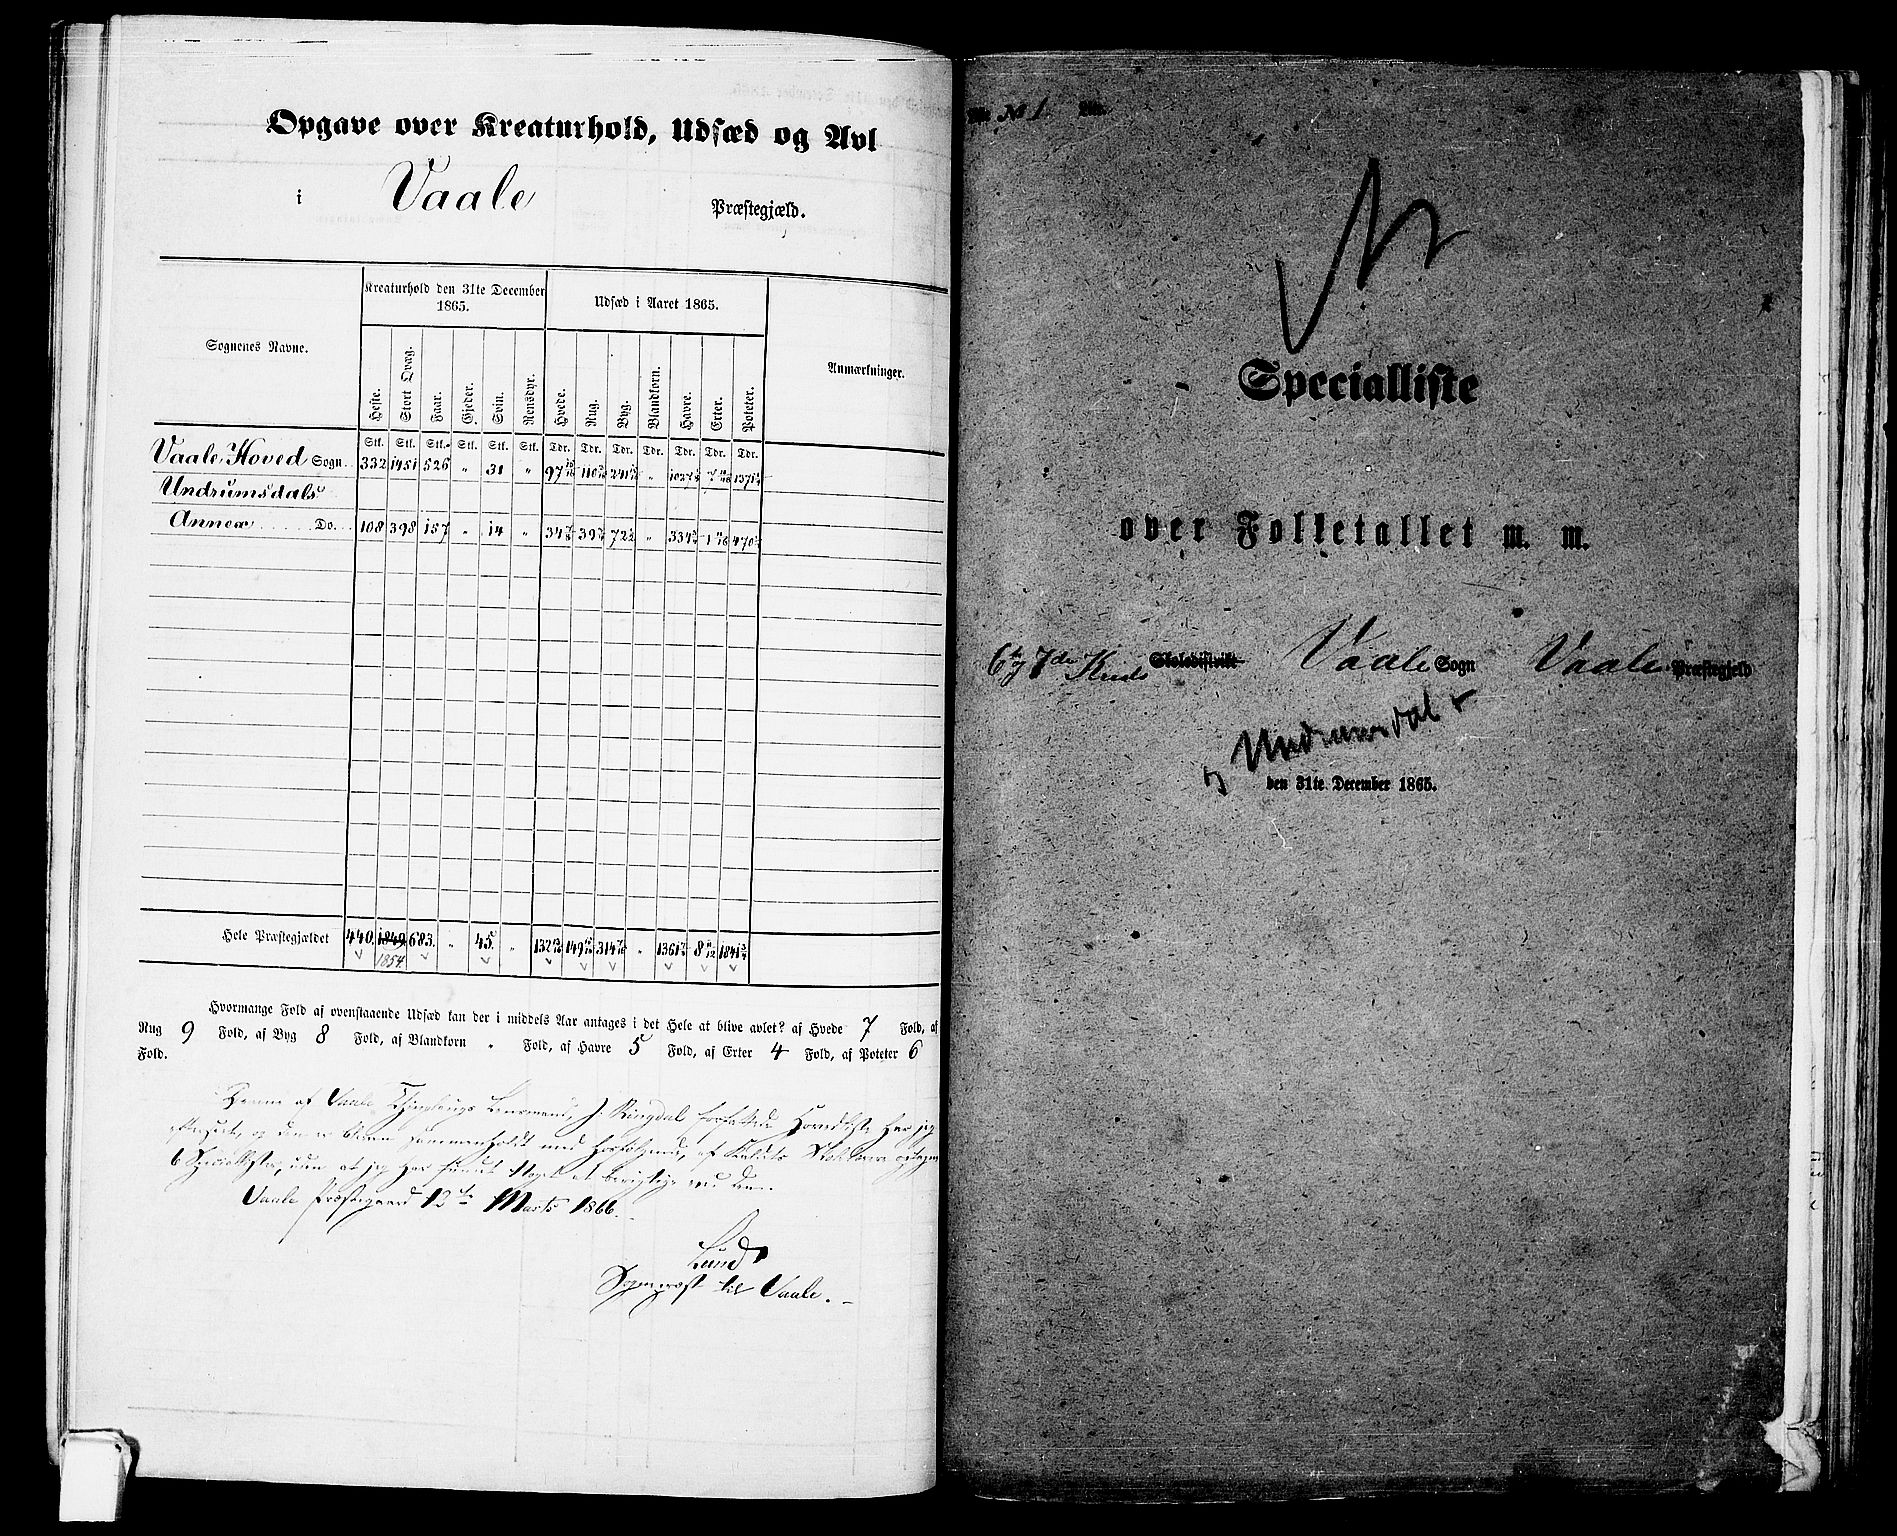 Opgave over Kreaturhold, Udsæd og Avl
i Vaale Præstegjæld.
Sognenes Navne.
Kreaturhold den 31te December 1865.
Udsæd i Aaret 1865.
Anmærkninger.
Heste. Stort Qvæg. Faar. Gjeder. Svin. Rensdyr. Hvede. Rug. Byg. Blandkorn. Havre. Erter. Poteter.
Stk. Stk. Stk. Stk. Stk. Stk. Tdr. Tdr. Tdr. Tdr. Tdr. Tdr. Tdr.
Vaale Hoved Sogn 332 1451 526 " 31 " 97 110 241 " 1027 7 1371
Undrumsdals
Annex ..... Do. 108 398 157 " 14 " 34 39 72½ " 334 1 470
Hele Præstegjældet 440. 1849 683. " 45. " 132 149 314 " 1361 8 1841
1854.
Hvormange Fold af ovenstaaende Udsæd kan der i middels Aar antages i det Hele at blive avlet? af Hvede 7 Fold, af
Rug 9 Fold, af Byg 8 Fold, af Blandkorn " Fold, af Havre 5 Fold, af Erter 4 Fold, af Poteter 6
Fold.
Denne af Vaale Thinglaugs Lensmand, J. Ringdal forfattede Hovedliste har jeg
og den er sammenholdt med af
6 at jeg har ved den.
Vaale Præstegaard 12te Marts 1866.
Lund
Sognepræst til Vaale.
No 1.
Specialliste
over Folketallet m. m.
6te og 7de Kreds Skoledistrikt Vaale Sogn Vaale Præstegjeld
Undrumsdal
den 31te December 1865.